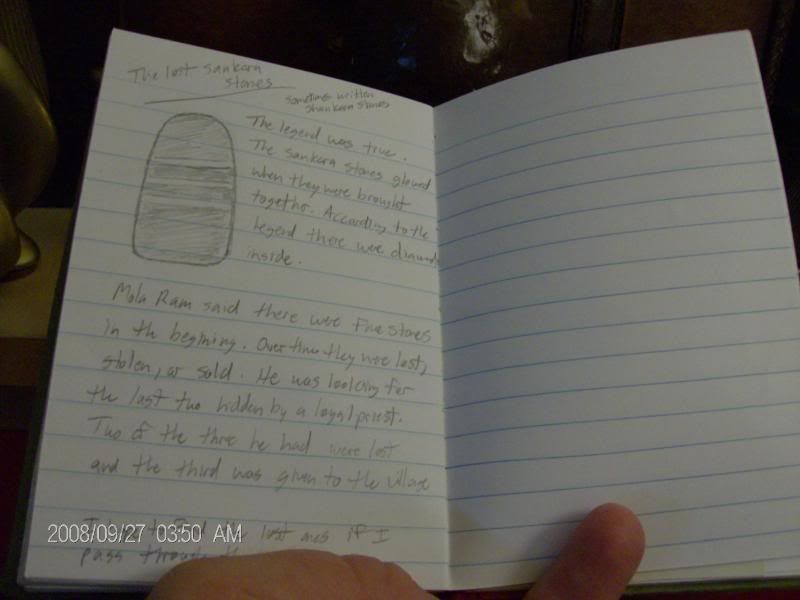 The lost sankara
stones
sometimes written
shankara stones
The legend was true.
The sankara stones glowed
when they were brought
together. According to the
legend there were diamonds
inside.
Mola Ram said there were Five stones
in the begining. Over time they were lost,
stolen, or sold. He was looking for
the last two hidden by a loyal priest.
Two of the three he had were lost
and the third was given to the village
last ones if I
pass through
2008/09/27 03:50 AM